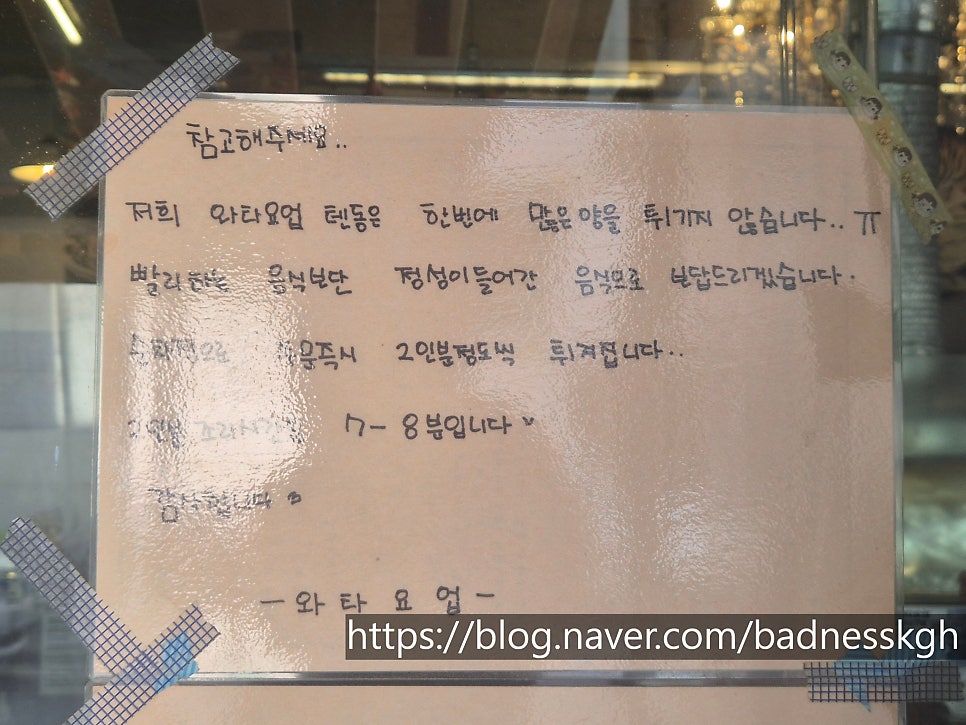 참고해주세요..
저희 와타요업 텐동은 한번에 많은양을 튀기지 않습니다.. ㅠ
빨리하는 음식보단 정성이들어간 음식으로 보답드리겠습니다.
순차적으로 주문즉시 2인분정도씩 튀겨집니다..
조리시간은 7-8분입니다
감사합니다
-와타요업-
https://blog.naver.com/badnesskgh